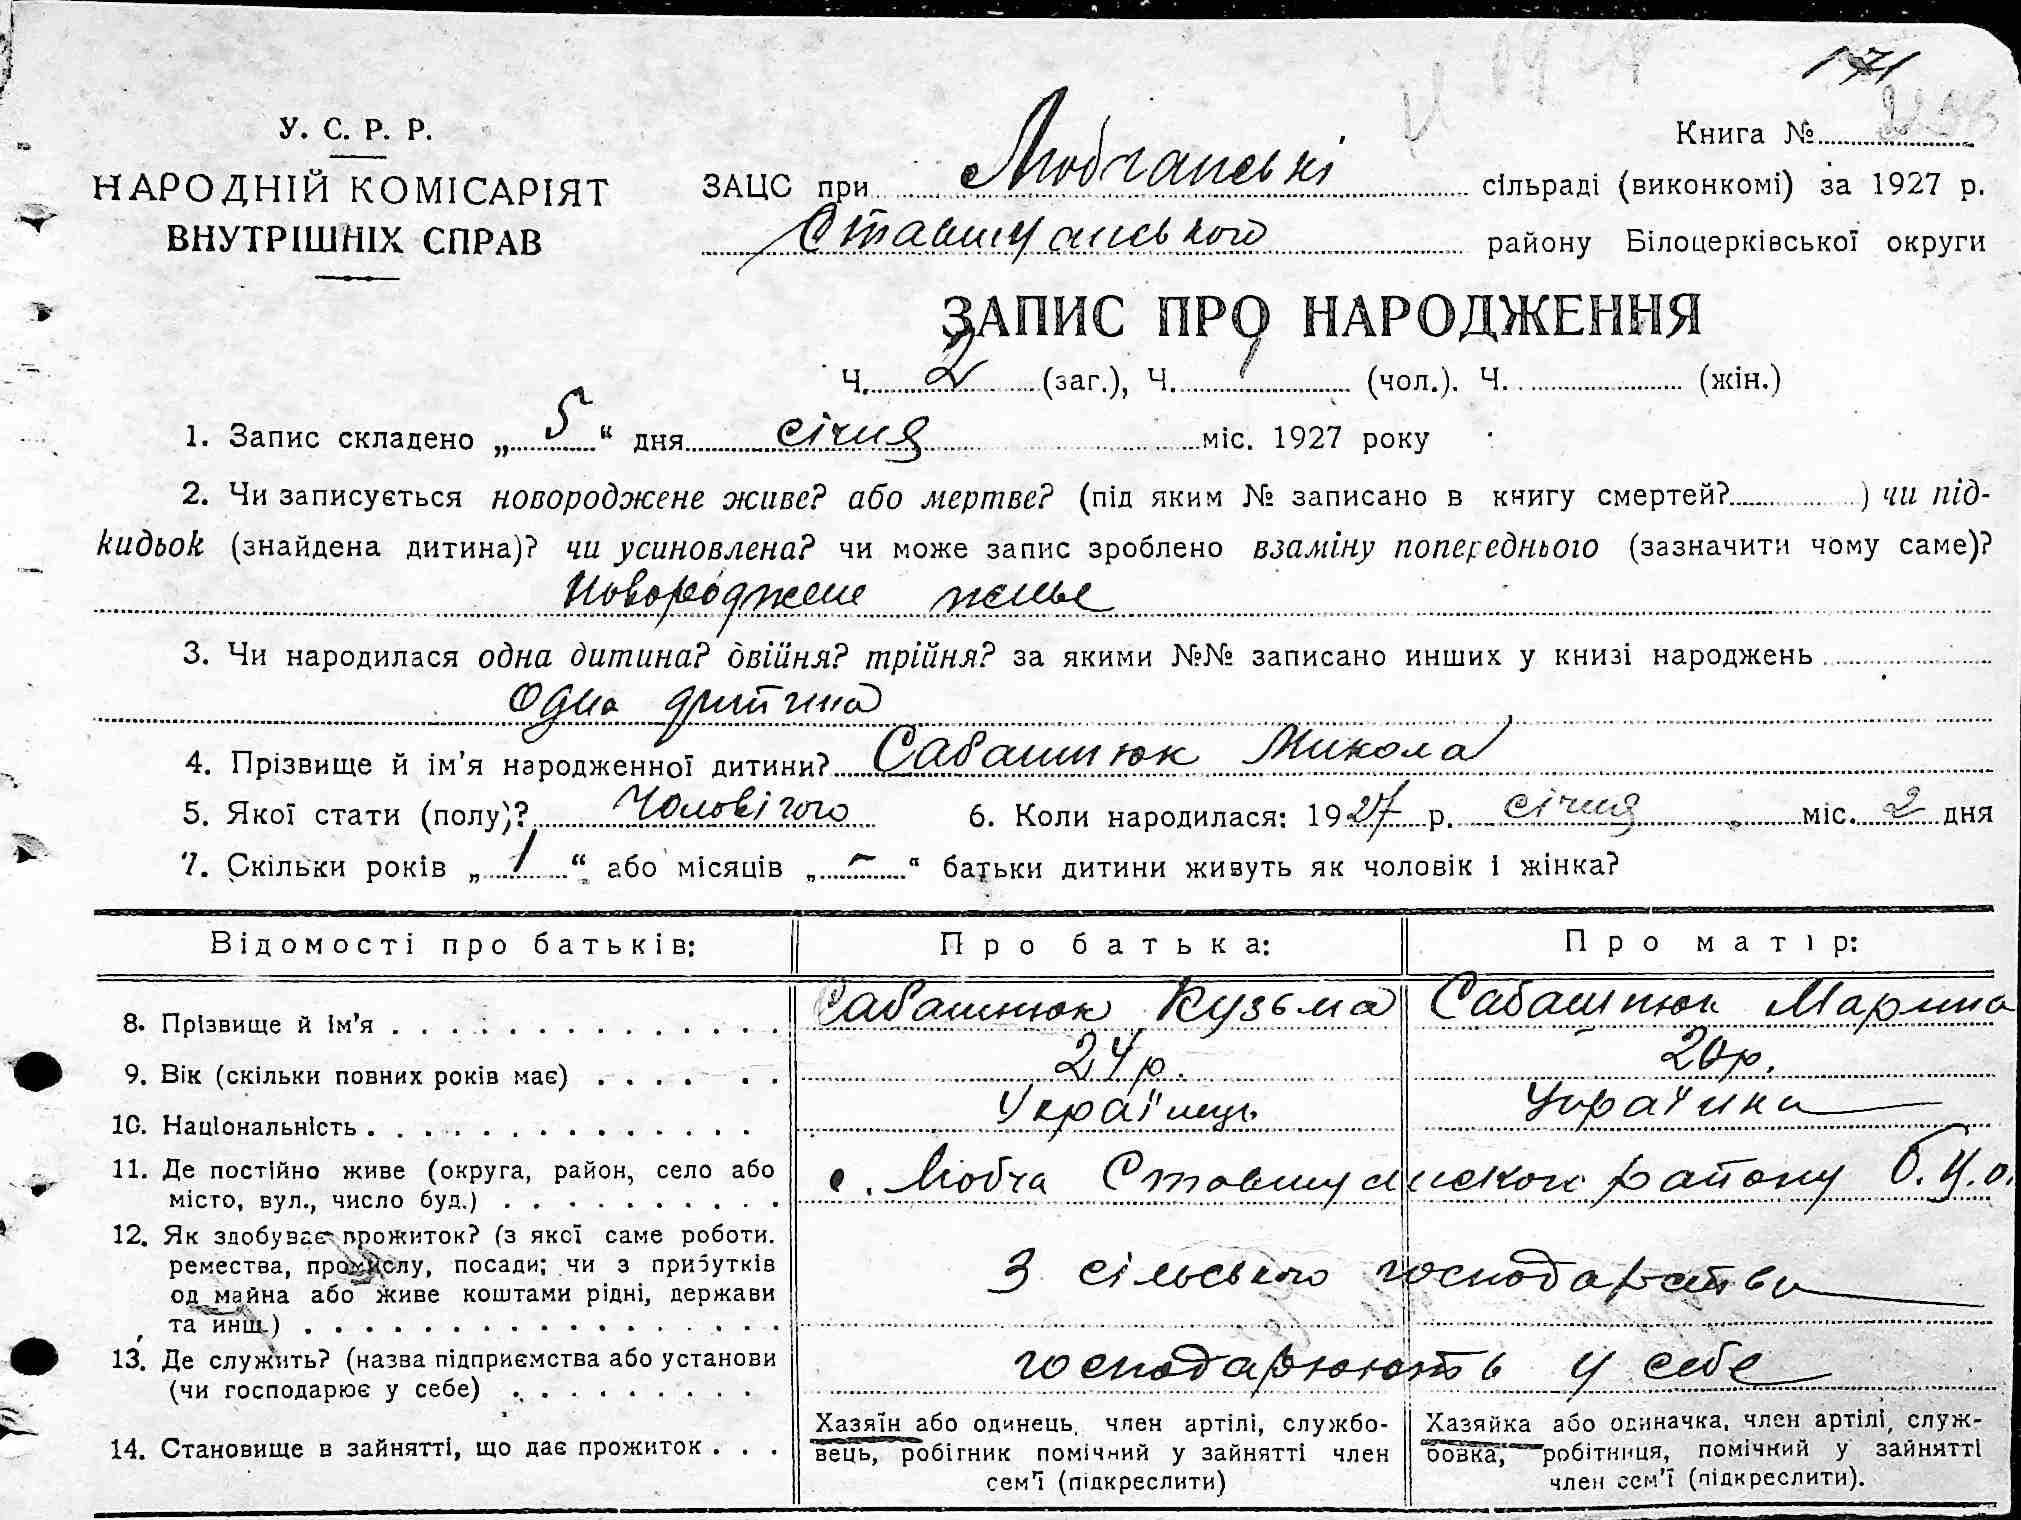 171
У. С. Р. Р.
НАРОДНІЙ КОМІСАРІЯТ
ВНУТРІШНІХ СПРАВ
Книга №
ЗАЦС при Любчанські сільраді (виконкомі) за 1927 р.
Ставищанського району Білоцерківської округи
ЗАПИС ПРО НАРОДЖЕННЯ
Ч. 2 (заг.), Ч. 1 (чол.). Ч. (жін.)
1. Запис складено „ 5 “ дня січня міс. 1927 року
2. Чи записується новороджене живе? або мертве? (під яким № записано в книгу смертей? ) чи під-
кидьок (знайдена дитина)? чи усиновлена? чи може запис зроблено взаміну попереднього (зазначити чому саме)?
Новороджене
3. Чи народилася одна дитина? двійня? трійня? за якими №№ записано инших у книзі народжень
Одна дитина
4. Прізвище й ім’я народженної дитини? Сабаштюк Микола
5. Якої стати (полу)? Чоловічого 6. Коли народилася: 1927 р. січня міс. 2 дня
7. Скільки років „ 1 “ або місяців „ – “ батьки дитини живуть як чоловік і жінка?
Відомості про батьків: Про батька: Про матір:
8. Прізвище й ім’я Сабаштюк Кузьма Сабаштюк Марина
9. Вік (скільки повних років має) 24 р. 20 р.
10. Національність Українець Українка
11. Де постійно живе (округа, район, село або
місто, вул., число буд.) с. Любча Ставищанского району Б.Ц.о.
12. Як здобуває прожиток? (з якої саме роботи.
ремества, промислу, посади; чи з прибутків
од майна або живе коштами рідні, держави
та инш.) З сільського господарства
13. Де служить? (назва підприємства або установи
(чи господарює у себе) господарюють у себе
14. Становище в зайнятті, що дає прожиток
Хазяїн або одинець, член артілі, службо-
вець, робітник помічний у зайнятті член
сем’ї (підкреслити)
Хазяйка або одиначка, член артілі, служ-
бовка, робітниця, помічний у зайнятті
член сем’ї (підкреслити).